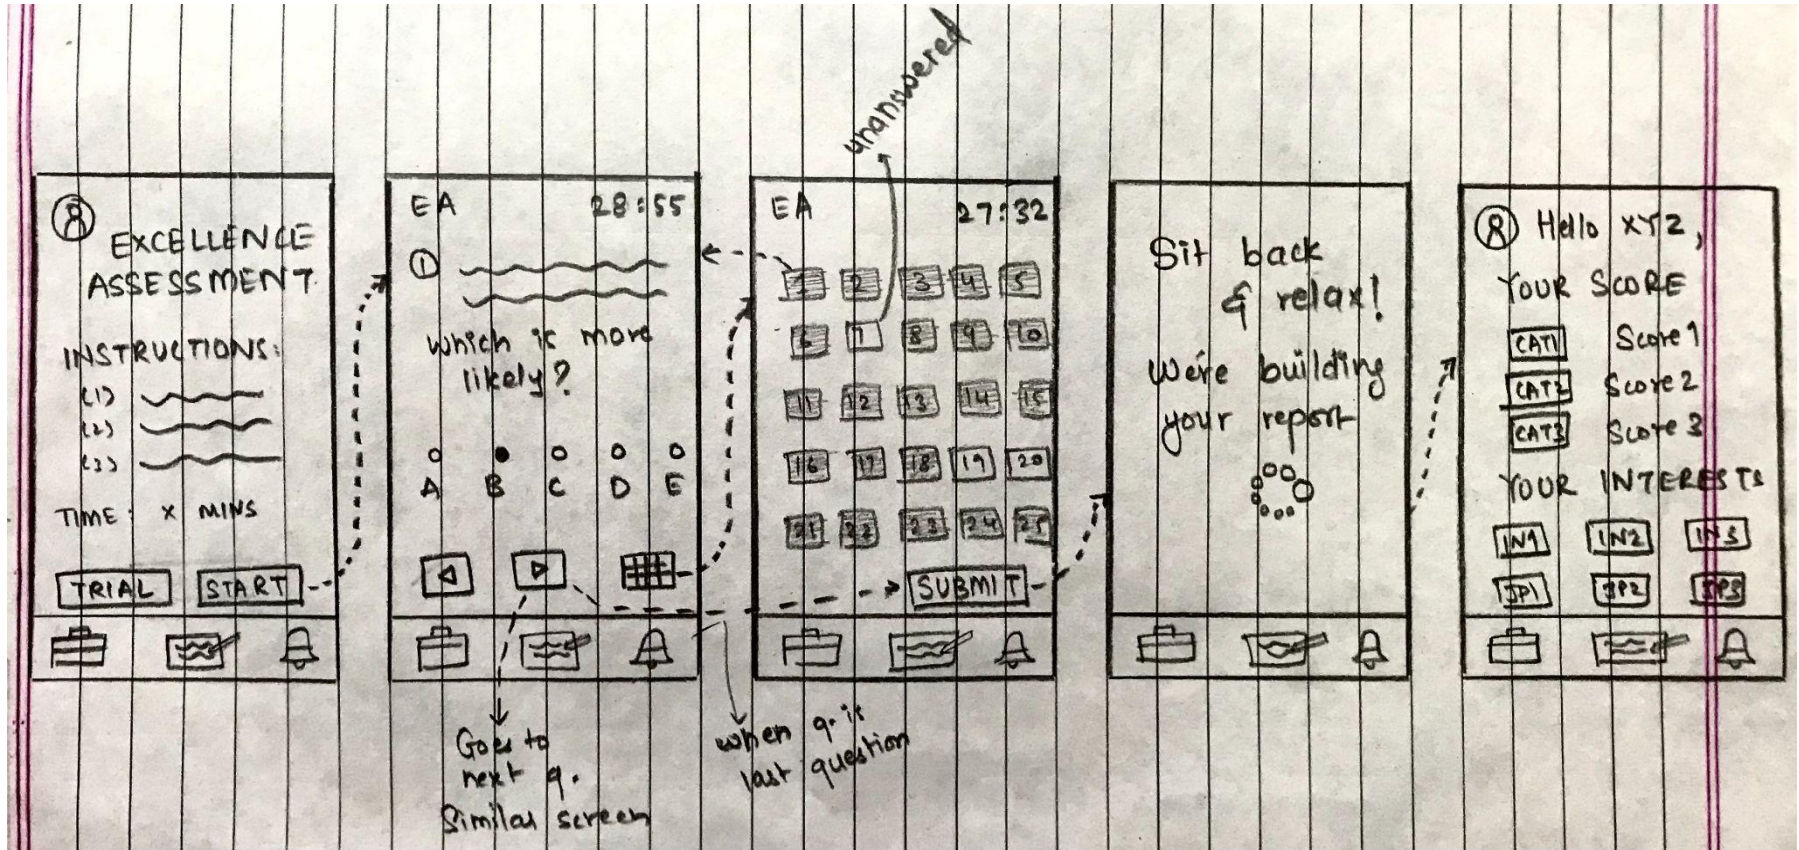 unanswered
EXCELLENCE
ASSESSMENT
INSTRUCTIONS:
(1)
(2)
(3)
TIME: X MINS
TRIAL START
EA 28:55
1
Which is more
likely?
A B C D E
Goes to
next q.
Similar screen
when q. is
last question
EA 27:32
1 2 3 4 5
6 7 8 9 10
11 12 13 14 15
16 17 18 19 20
21 22 23 24 25
SUBMIT
Sit back
& relax!
We're building
your report
Hello XYZ,
YOUR SCORE
CAT1 Score 1
CAT2 Score 2
CAT3 Score 3
YOUR INTERESTS
IN1 IN2 IN3
JP1 JP2 JP3